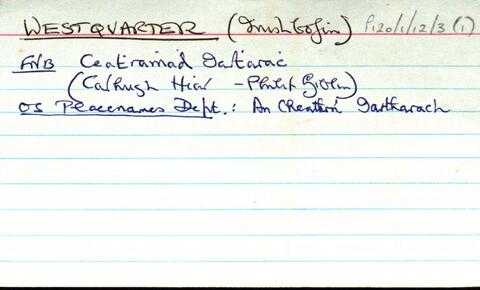 WESTQUARTER (Inishbofin) P120/1/12/3 (1)
FNB Ceatramad Iartarac
(Cathrugh Hiar - Philip Gibbon)
OS Placenames Dept.: An Cheathrú Iartharach